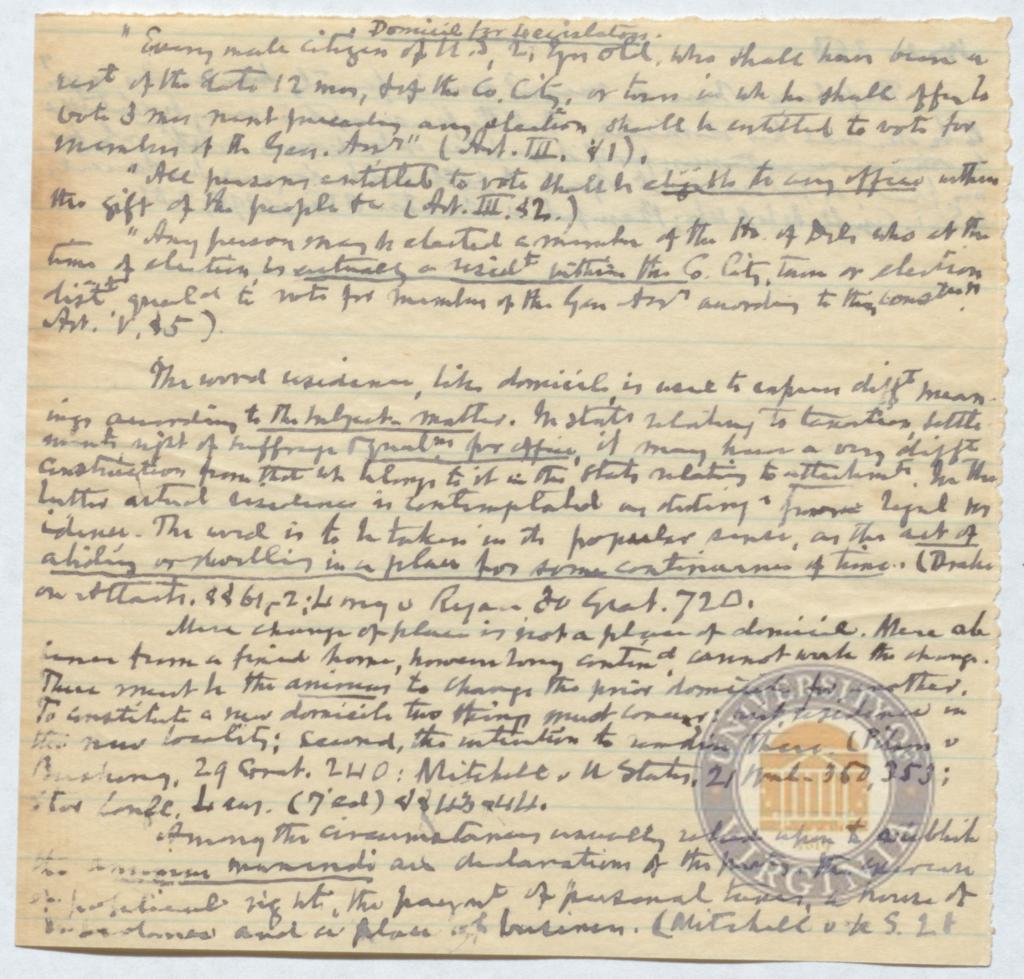 Domicil for Legislators.
"Every male citizen of U.S, 21 yrs old, who shall have been a
rest of the State 12 mos, & of the Co. City, or town in wh he shall offer to
vote 3 mos next preceding any election, shall be entitled to vote for
members of the Gen. Assy" (Art. III. §1).
"All persons entitled to vote shall be eligible to any office within
the gift of the people &c (Art. III. §2.)
"Any person may be elected a member of the Ho. of Dels who at the
time of election is actually a residt within the Co. City, town or election
distt quald to vote for members of the Gen Assy according to this constn
Art. V, §5).
The word residence, like domicile, is used to express difft mean-
ings according to the subject matter. In stats relating to taxation, settle
ments right of suffrage & qualns for office, it may have a very difft
construction from that wh belongs to it in the stats relating to attachmts. In the
latter actual residence is contemplated as disting from legal res
idence. The word is to be taken in its popular sense, as the act of
abiding or dwelling in a place for some continuance of time. (Drake
on Attacts. §§61-2: Long v Ryan 30 Grat. 720.
Mere change of place is not a place of domicil. Mere ab
sence from a fixed home, however long contind cannot work the change.
There must be the animus to change the prior domicile for another.
To constitute a new domicile two things must concur: first, residence in
the new locality; second, the intention to remain there. (Pilson v
Bushong, 29 Grat. 240: Mitchell v U States, 21 Wall. 350, 353;
Laws. (7 ed) §§43 & 44.
Among the circumstances usually relied upon to establish
the animus manendi are declarations of the party; the exercise
of political rights, the paymt of personal taxes, a house of
residence and a place of business. (Mitchell v U S. 21
UNIVERSITY OF VIRGINIA